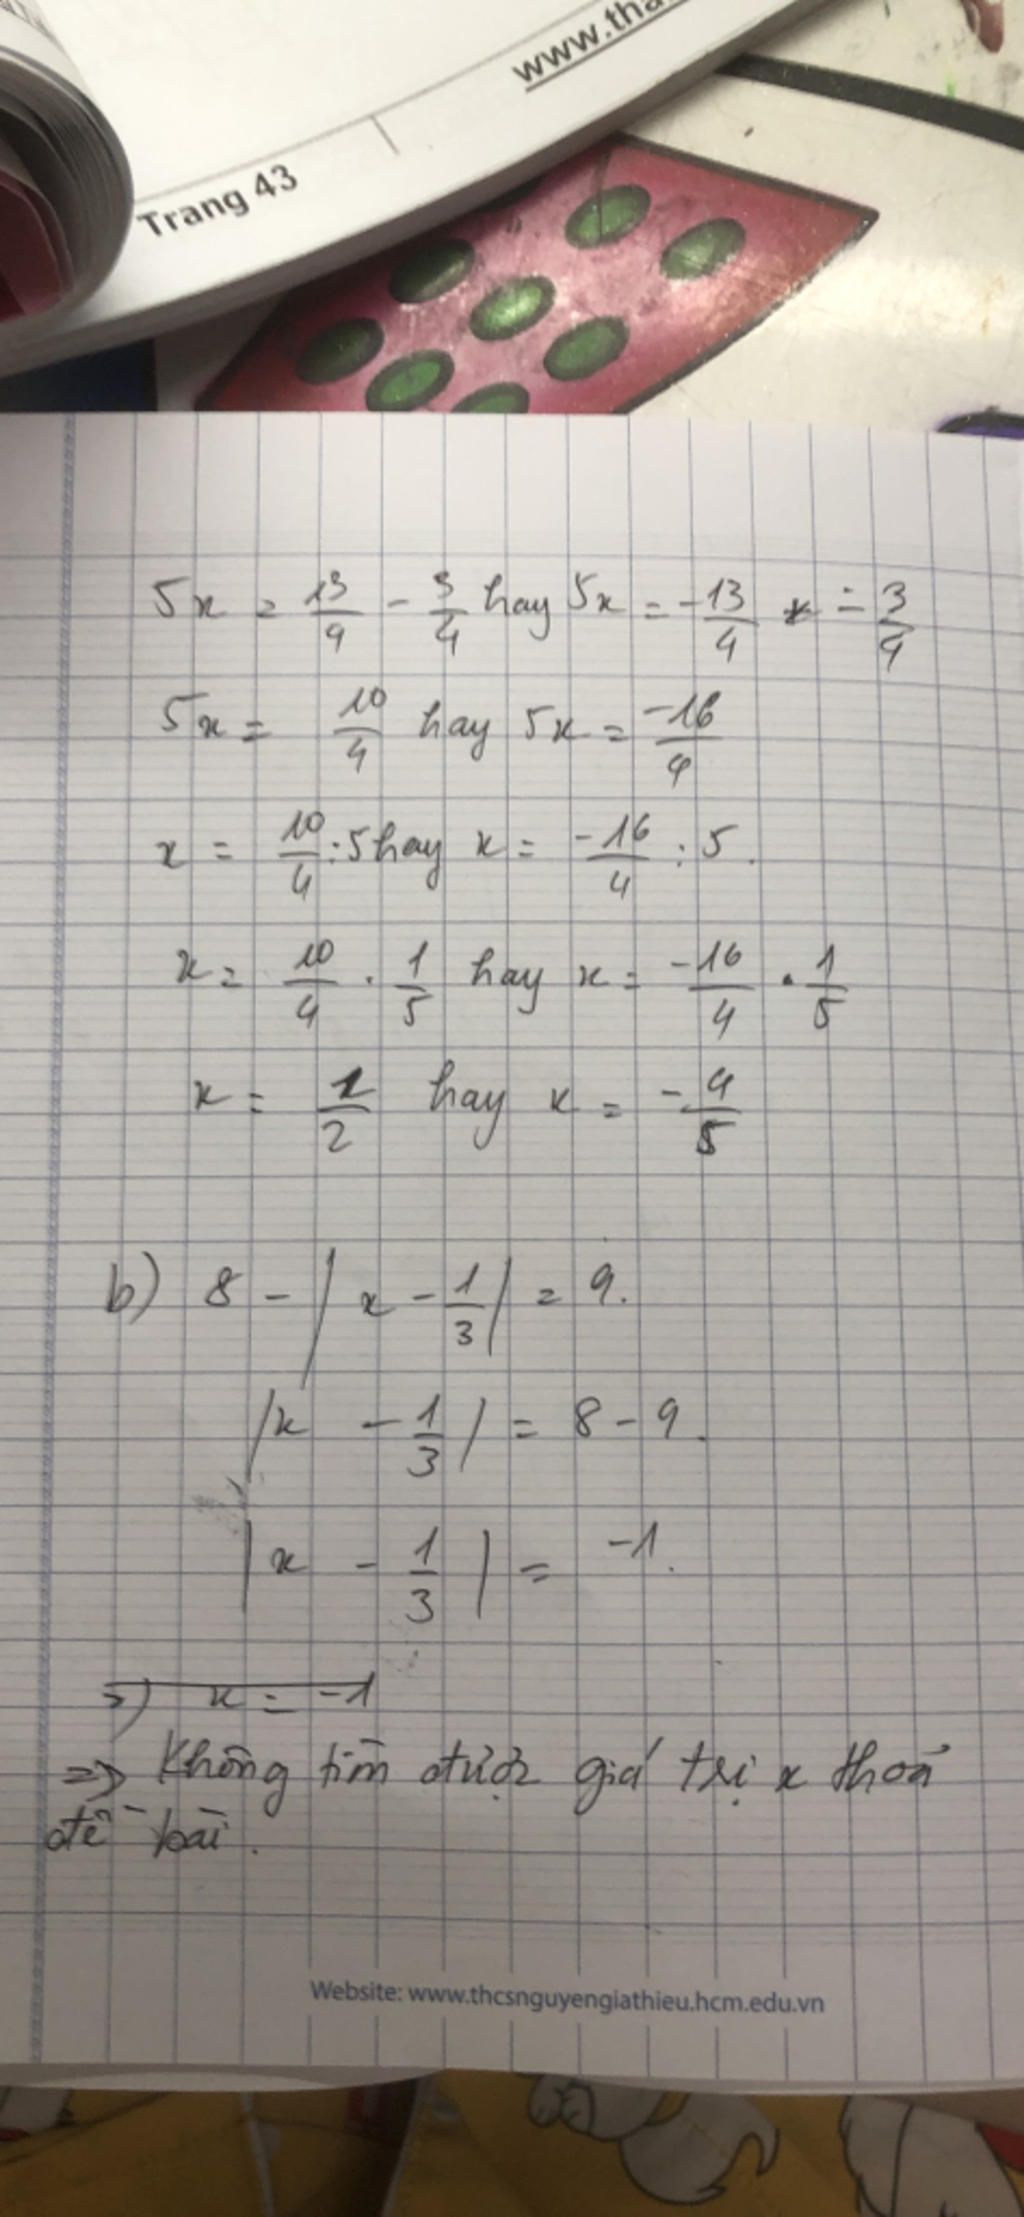 www.tha
Trang 43
5x = 13/4 - 3/4 hay 5x = -13/4 - 3/4
5x = 10/4 hay 5x = -16/4
x = 10/4 : 5 hay x = -16/4 : 5.
x = 10/4 . 1/5 hay x = -16/4 . 1/5
x = 1/2 hay x = -4/5
b) 8 - |x - 1/3| = 9.
|x - 1/3| = 8 - 9.
|x - 1/3| = -1.
=> x = -1
=> Không tìm được giá trị x thoả
đề bài.
Website: www.thcsnguyengiathieu.hcm.edu.vn